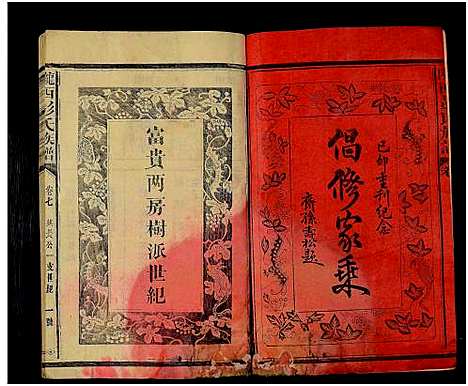 己卯重刊紀念
倡修家乘
裔孫壽松題
富貴两房樹派世紀
彭氏族譜
卷七